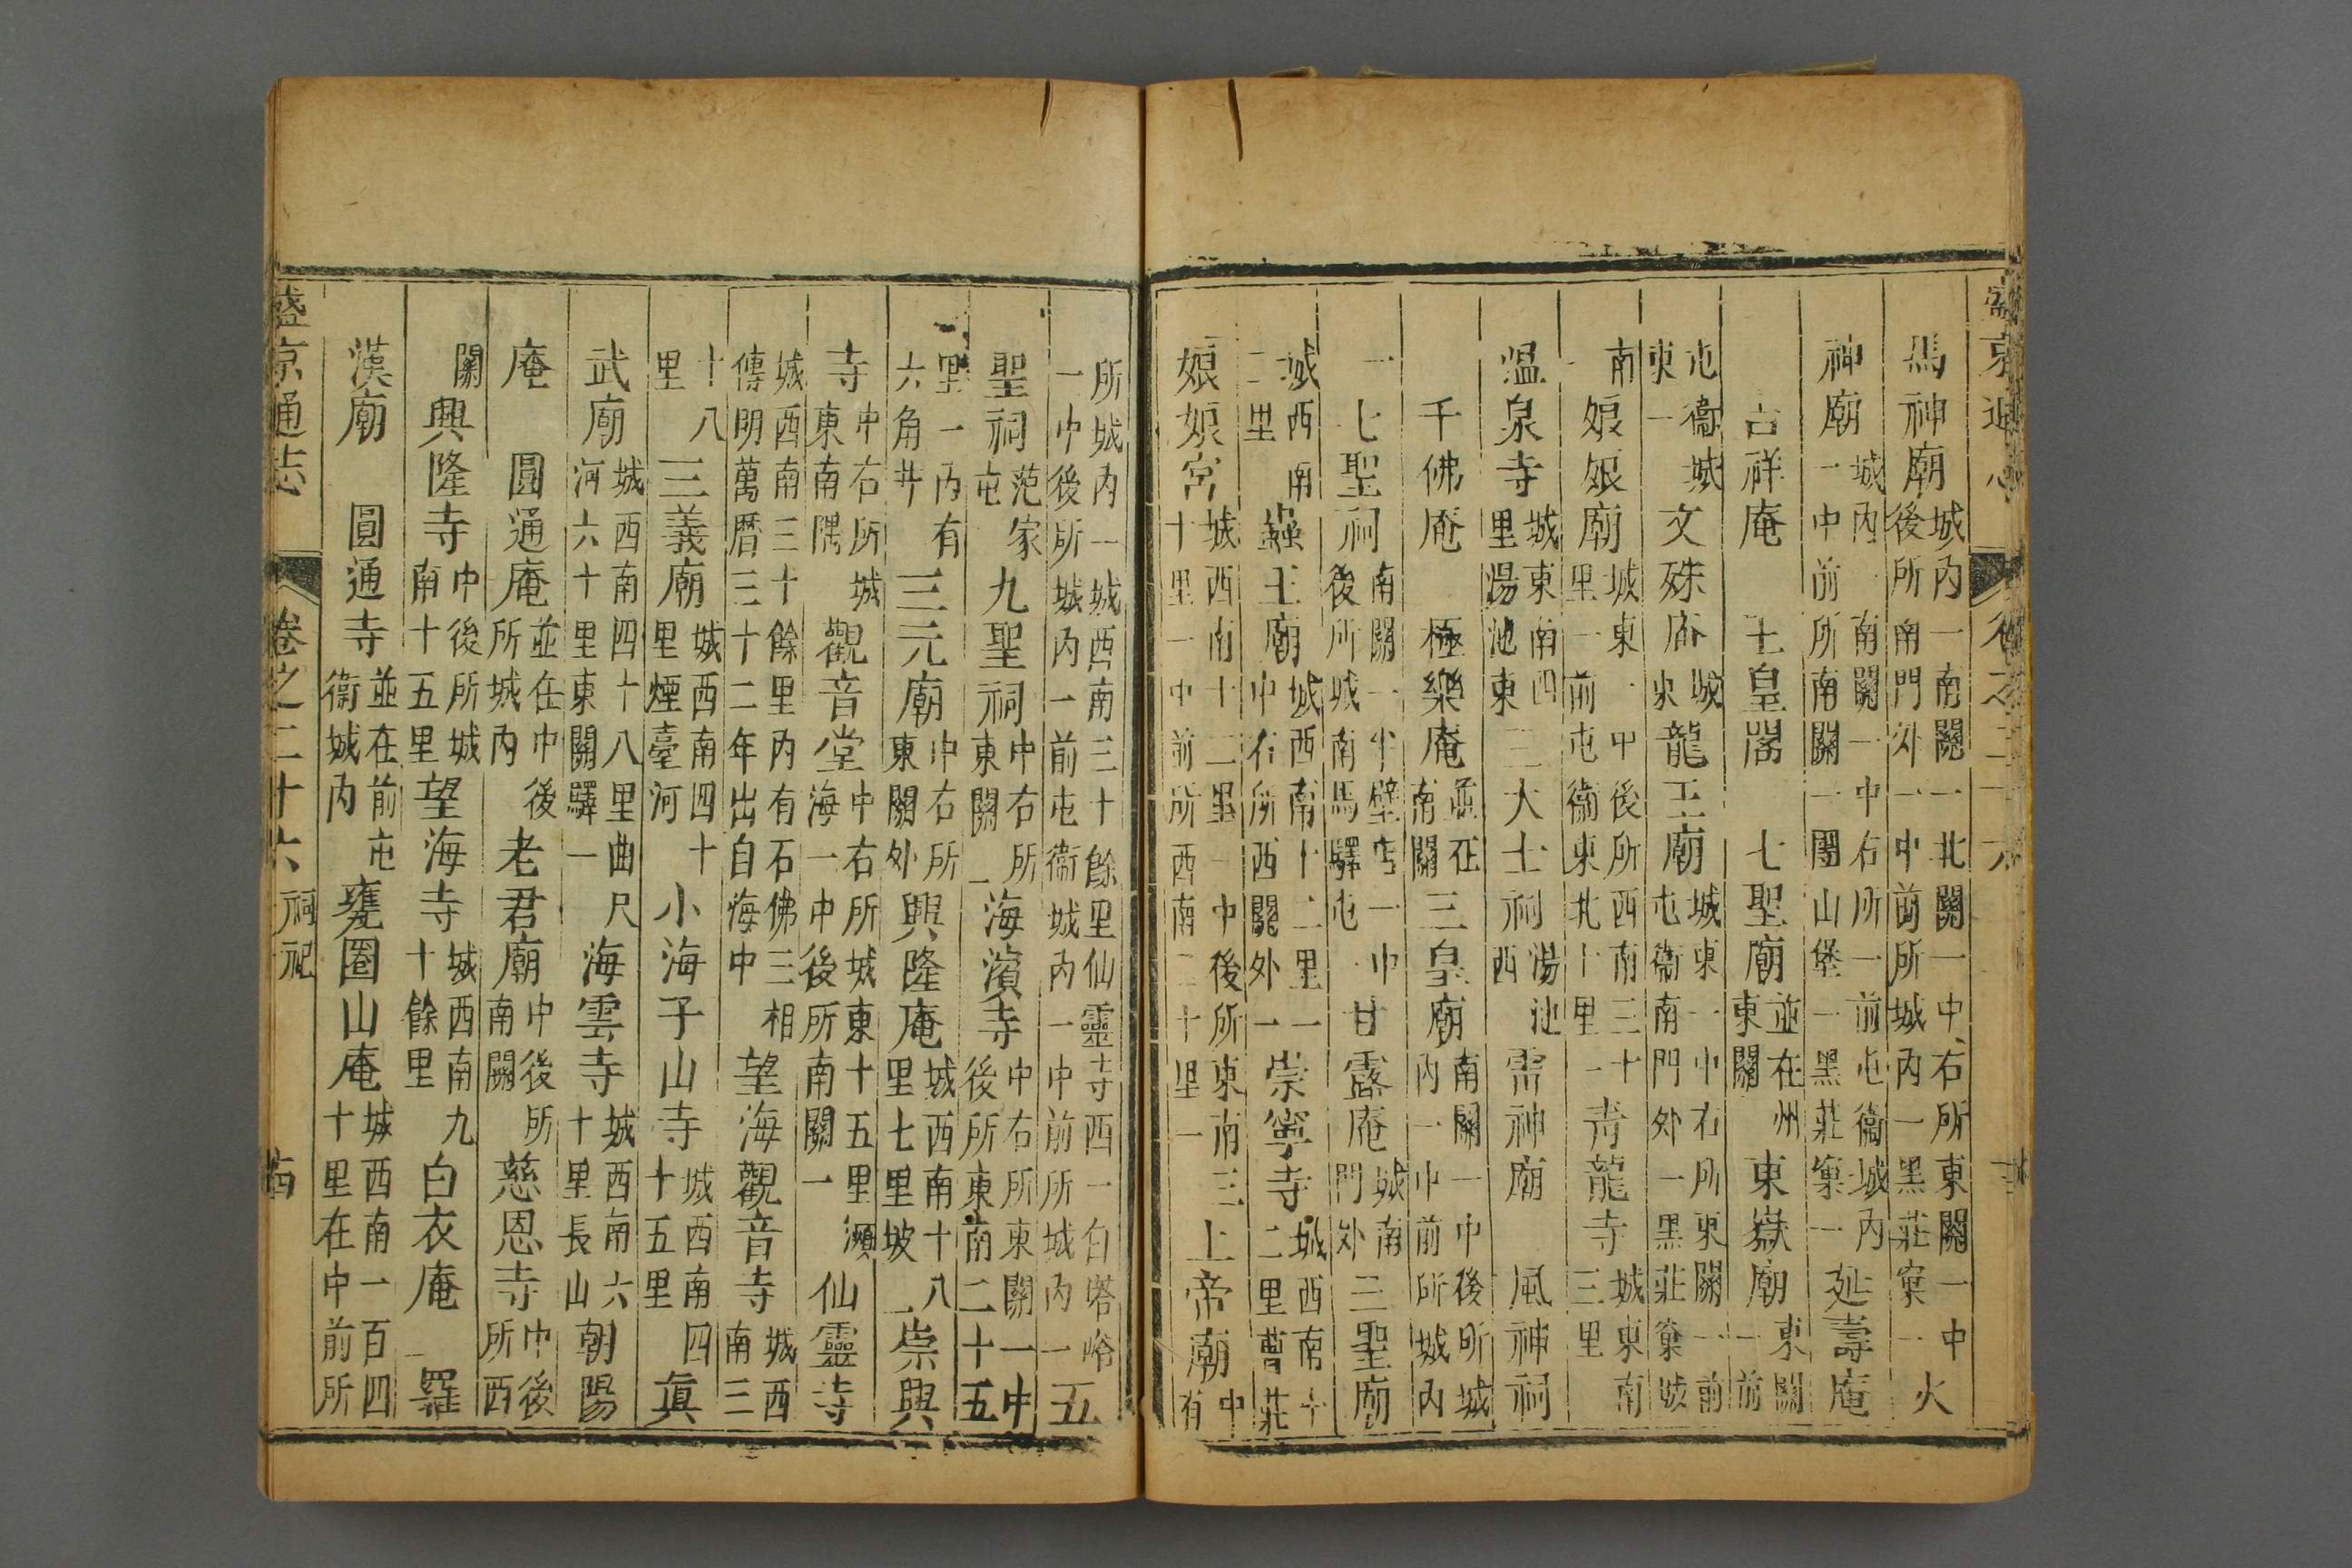 盛京通志 卷之二十六
馬神廟城內一南關一北關一中右所東關一中後所南門外一中前所城內一黑莊窠一火
神廟城內一南關一中右所一前屯衞城內一中前所南關一團山堡一黑莊窠一延壽庵
吉祥庵 玉皇閣 七聖廟並在州東關東嶽廟東關一前
屯衞城東一文殊庙城東龍王廟城東一中右所東關一前屯衞南門外一黑莊窠城
南一娘娘廟城東一中後所西南三十里一前屯衞東北十里一青龍寺城東南三里
溫泉寺城東南四里湯池東三大士祠湯池西雷神廟 風神祠
千佛庵 極樂庵並在南關三皇廟南關一中後所城內一中前所城內
一七聖祠南關一半壁店一中後所城南馬驛屯一甘露庵城南門外三聖廟
城西南二里蟲王廟城西南十二里一中右所西關外一崇寧寺城西南十二里曹莊
娘娘宮城西南十二里一中後所東南三十里一中前所西南二十里一上帝廟中有
所城內一城西南三十餘里仙靈寺西一白塔峪一中後所城內一前屯衞城內一中前所城內一五
聖祠范家屯九聖祠中右所東關海濱寺中右所東關一中後所東南二十五
里一內有六角井三元廟中右所東關外興隆庵城西南十八里七里坡崇興
寺中右所城東南隅觀音堂中右所城東十五里灝海一中後所南關一仙靈寺
城西南三十餘里內有石佛三相傳明萬曆三十二年出自海中望海觀音寺城西南三
十八里三義廟城西南四十里煙臺河小海子山寺城西南四十五里真
武廟城西南四十八里曲尺河六十里東關驛一海雲寺城西南六十里長山朝陽
庵 圓通庵並在中後所城內老君廟中後所南關慈恩寺中後所西
關興隆寺中後所城南十五里望海寺城西南九十餘里白衣庵 羅
漢廟 圓通寺並在前屯衞城內甕圈山庵城西南一百四十里在中前所
盛京通志 卷之二十六 祠祀 十四